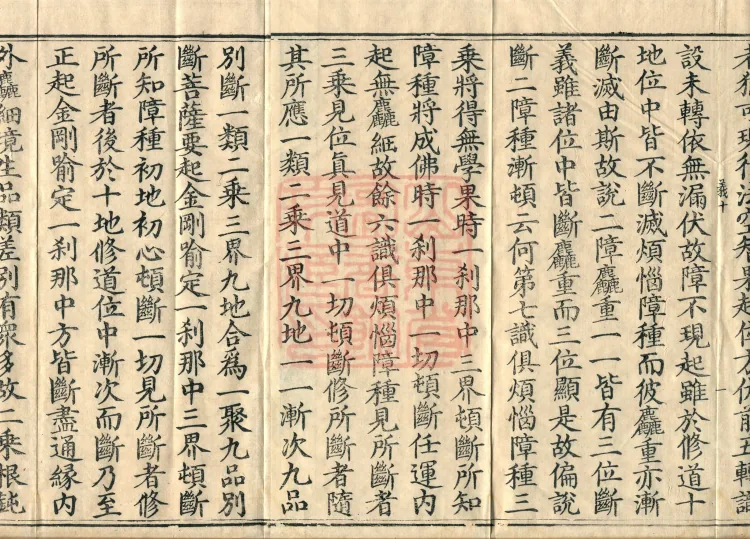 猶可現行法空智果起位方伏前五轉識
義十
設未轉依無漏伏故障不現起雖於修道十
地位中皆不斷滅煩惱障種而彼麤重亦漸
斷滅由斯故說二障麤重一一皆有三位斷
義雖諸位中皆斷麤重而三位顯是故偏說
斷二障種漸頓云何第七識俱煩惱障種三
乘將得無學果時一剎那中三界頓斷所知
障種將成佛時一剎那中一切頓斷任運內
起無麤細故餘六識俱煩惱障種見所斷者
三乘見位眞見道中一切頓斷修所斷者隨
其所應一類二乘三界九地一一漸次九品
別斷一類二乘三界九地合爲一聚九品別
斷菩薩要起金剛喻定一剎那中三界頓斷
所知障種初地初心頓斷一切見所斷者修
所斷者後於十地修道位中漸次而斷乃至
正起金剛喻定一剎那中方皆斷盡通緣內
外麤細境生品類差別有眾多故二乘根鈍